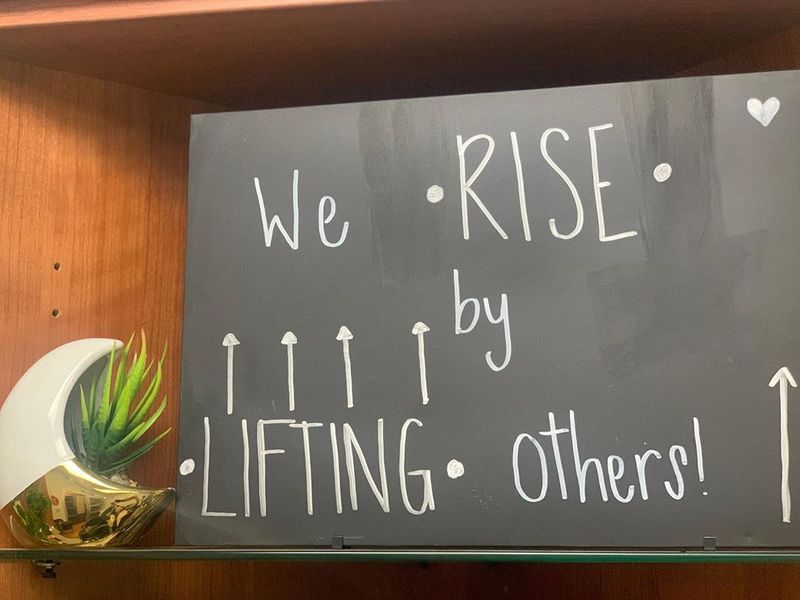 We • RISE •
by
• LIFTING • Others!